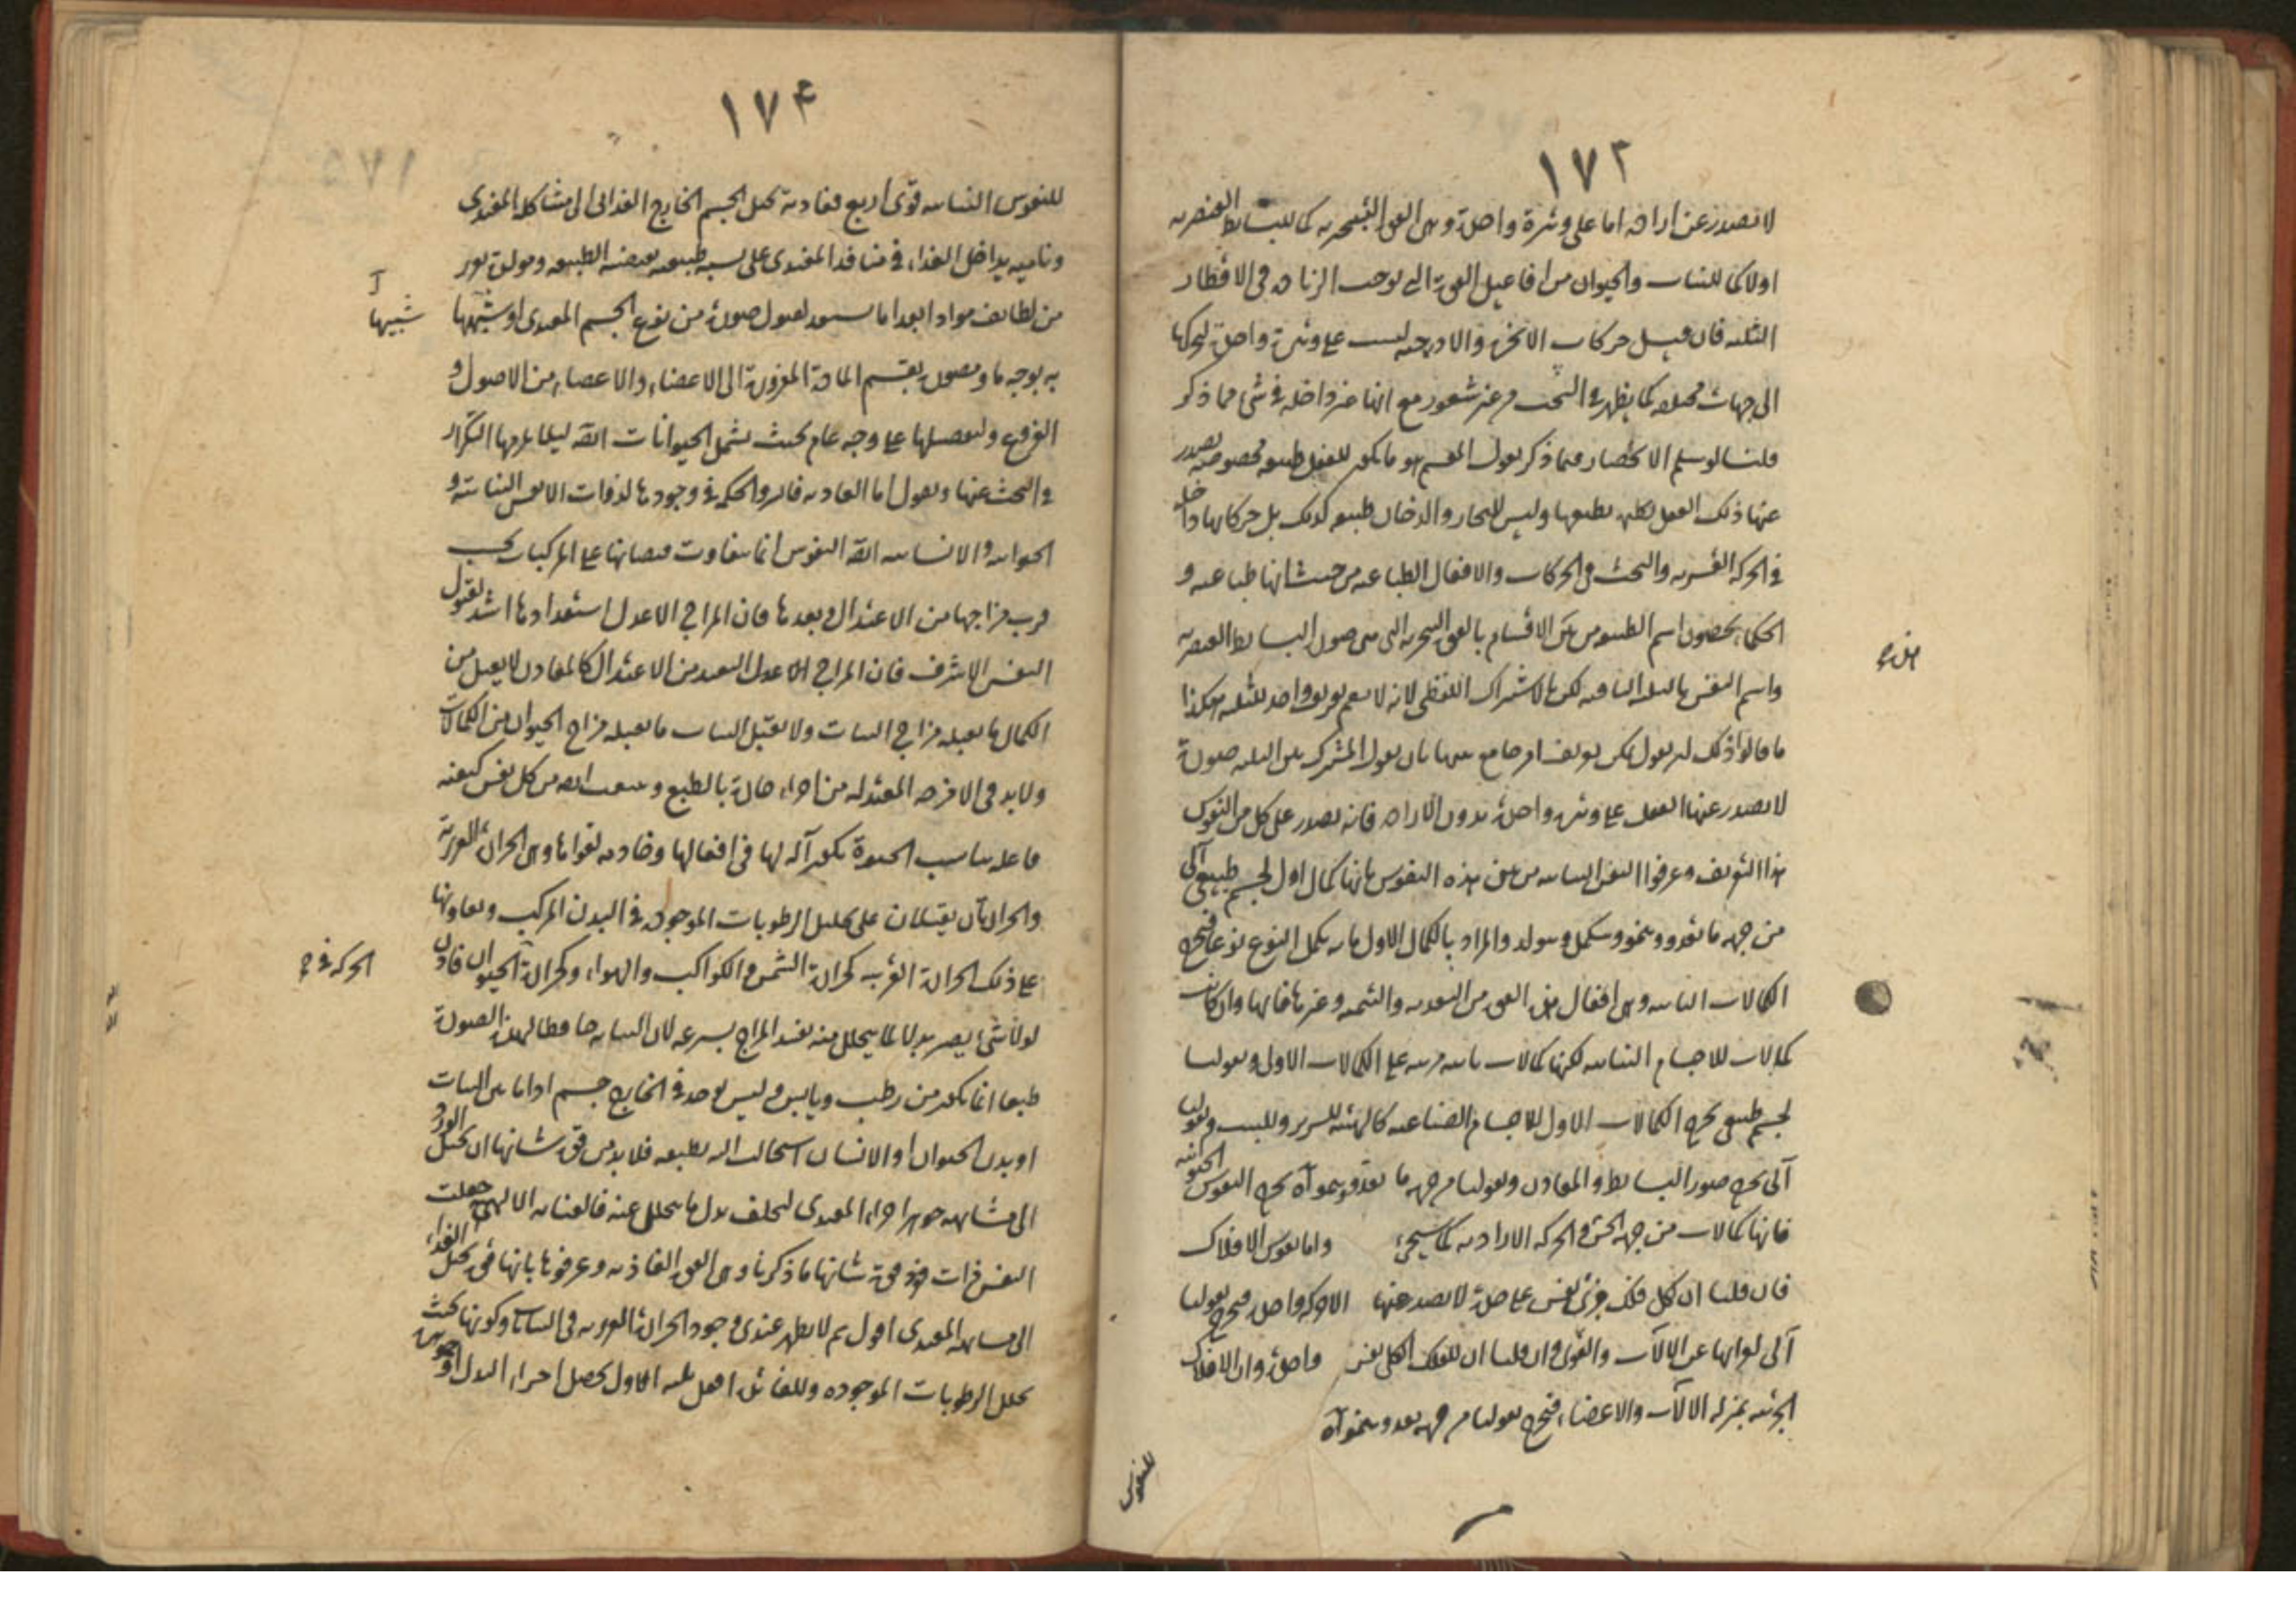 ١٧٣
لا تصدر عن ارادة اما على وتيرة واحدة وهى القوى التسخيرية كما للبسايط العنصرية
اولا كما للنبات والحيوان من افاعيل القوة التى توجب الزيادة فى الاقطار
الثلثة فان قيل حركات الابخرة والادخنة ليست على وتيرة واحدة لتحركها
الى جهات مختلفة كما يظهر فى البحث من غير شعور مع انها غير داخلة فى شئ مما ذكر
قلنا لو سلم الانحصار فيما ذكر نقول المقسم هو ما يكون للفعل طبيعة مخصوصة يصدر
عنها ذلك الفعل وليس للبخار والدخان طبيعة كذلك بل حركاتها داخل
فى الحركة القسرية والبحث فى الحركات والافعال الطباعية من حيث انها طباعية و
الحكماء يخصون اسم الطبيعة من بين الاقسام بالقوى التسخيرية التى هى صور البسايط العنصرية
واسم النفس بالثلثة الباقية لكن بالاشتراك اللفظى لانه لا يعم تعريف واحد للثلثة هكذا
ما قالوا ذلك ان نقول يمكن تعريف امر جامع بينها بان يقول المشترك بين الثلثة صورة
لا يصدر عنها الفعل على وتيرة واحدة بدون الارادة فانه يصدق على كل من النفوس
هذا التعريف وعرفوا النفس النباتية من بين هذه النفوس بانها كمال اول لجسم طبيعى آلى
من جهة ما يتغذى وينمو ويستكمل ويتولد والمراد بالكمال الاول ما به يكمل النوع نوعا فيخرج
الكمالات الثانية وهى افعال هذه القوى من التغذية والتنمية وغيرها فانها وان كانت
كمالات للاجسام النباتية لكنها كمالات ثانية مترتبة على الكمالات الاول وبقولنا
لجسم طبيعى يخرج الكمالات الاول للاجسام الصناعية كالهيئة للسرير وللبيت وبقولنا
آلى يخرج صور البسايط والمعادن وبقولنا من جهة ما يتغذى وينمو آه يخرج النفوس الحيوانية
فانها كمالات من جهة الحس والحركة الارادية كما سيجئ واما نفوس الافلاك
فان قلنا ان كل فلك جزئى نفس على حدة لا يصدر عنها الا حركة واحدة فيخرج بقولنا
آلى لعرائها عن الآلات والقوى وان قلنا ان للفلك الكلى نفس واحدة وان الافلاك
الجزئية بمنزلة الآلات والاعضاء فيخرج بقولنا من جهة يتغذى وينمو آه
للنفوس
١٧٤
للنفوس النباتية قوى اربع فغاذية تحيل الجسم الخارج الغذائى الى مشاكلة المغتذى
ونامية يداخل الغذاء فى منافذ المغتذى على نسبة طبيعية يقتضيه الطبيعة ومولدة تفرز
من لطائف مواد الغذاء ما يستعد لقبول صورة من نوع الجسم المغتذى او شبيهها
شبيها
به بوجه ما ومصورة يقسم المادة المفروزة الى الاعضاء والاعضاء من الاصول و
الفروع ولنفصلها على وجه عام بحيث يشمل الحيوانات ايضا ليلا يلزمها التكرار
فى البحث عنها ونقول اما الغاذية قالوا الحكمة فى وجودها لذوات الانفس النباتية و
الحيوانية والانسانية ايضا النفوس انما يتفاوت فيضانها على المركبات بحسب
قرب مزاجها من الاعتدال وبعدها فان المزاج الاعدل استعدادها اشد لقبول
النفس الاشرف فان المزاج البعيد من الاعتدال كالمعادن لا يقبل من
الكمال ما يقبله مزاج النبات ولا يقبل النبات ما يقبله مزاج الحيوان من الكمالات
ولا بد فى الامزجة المعتدلة من اجزاء حارة بالطبع وينبعث ايضا من كل نفس كيفية
فاعلة يناسب الحيوة يكون آلة لها فى افعالها وخادمة لقواها وهى الحرارة الغريزية
والحرارتان يقبلان على تحليل الرطوبات الموجودة فى البدن المركب ويعاونها
على ذلك الحرارة الغريبة كحرارة الشمس والكواكب والهواء وكحرارة الحيوان فان
الحركة فى
لولا شئ يصير بدلا لما يتحلل منه لفسد المزاج بسرعة لان النباتية حافظا لهذه الصورة
طبعا انما يكون من رطب ويابس وليس يوجد فى الخارج جسم اذا ماس النبات
او بدن الحيوان او الانسان استحالت اليه بطبعه فلا بد من قوة شانها ان تحيل الوارد
الى مشابهة جوهر اجزاء المغتذى ليخلف بدل ما يتحلل عنه فالعناية الالهية جعلت
النفس ذات قوة شانها ما ذكرنا وهى القوة الغاذية وعرفوها بانها قوة تحيل الغذاء
الى مشابهة المغتذى اقول ثم لا يظهر عندى وجود الحرارة الغريزية فى النبات وكونها بحيث
يحلل الرطوبات الموجودة وللغاذية افعال ثلثة الاول تحصيل اجزاء البدل